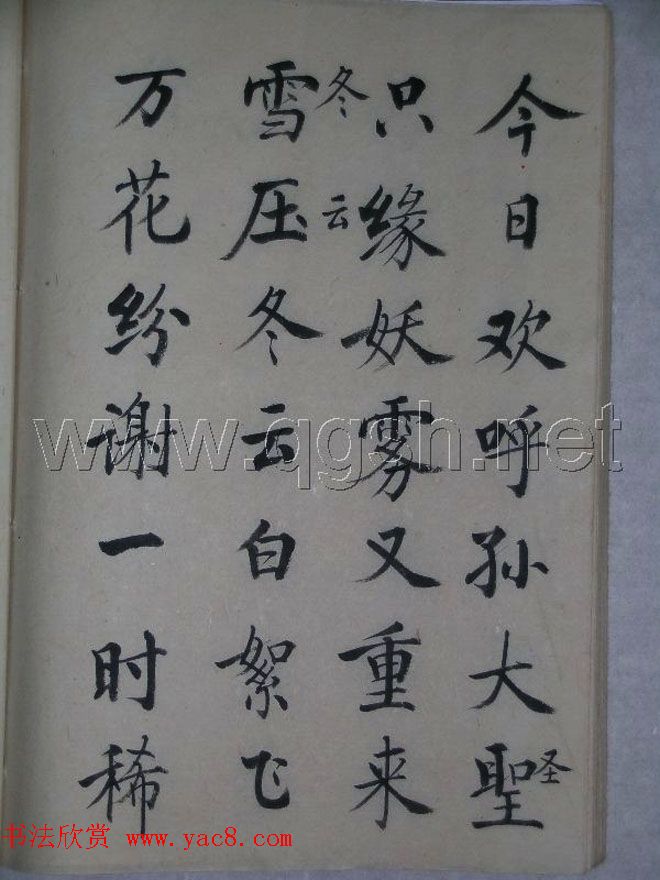 今日欢呼孙大聖
圣
只缘妖雾又重来
冬云
雪压冬云白絮飞
万花纷谢一时稀
www.qgsh.net
书法欣赏 www.yac8.com